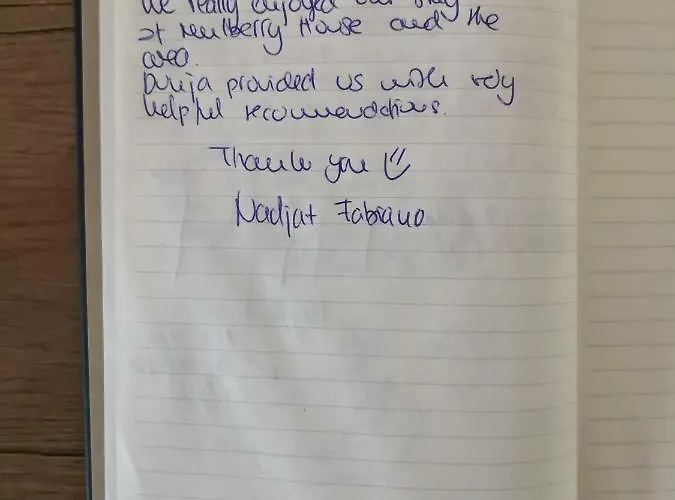 We really enjoyed our stay
at Mulberry House and the
area.
Dunja provided us with very
helpful recommendations.
Thank you
Nadjat Fabiano